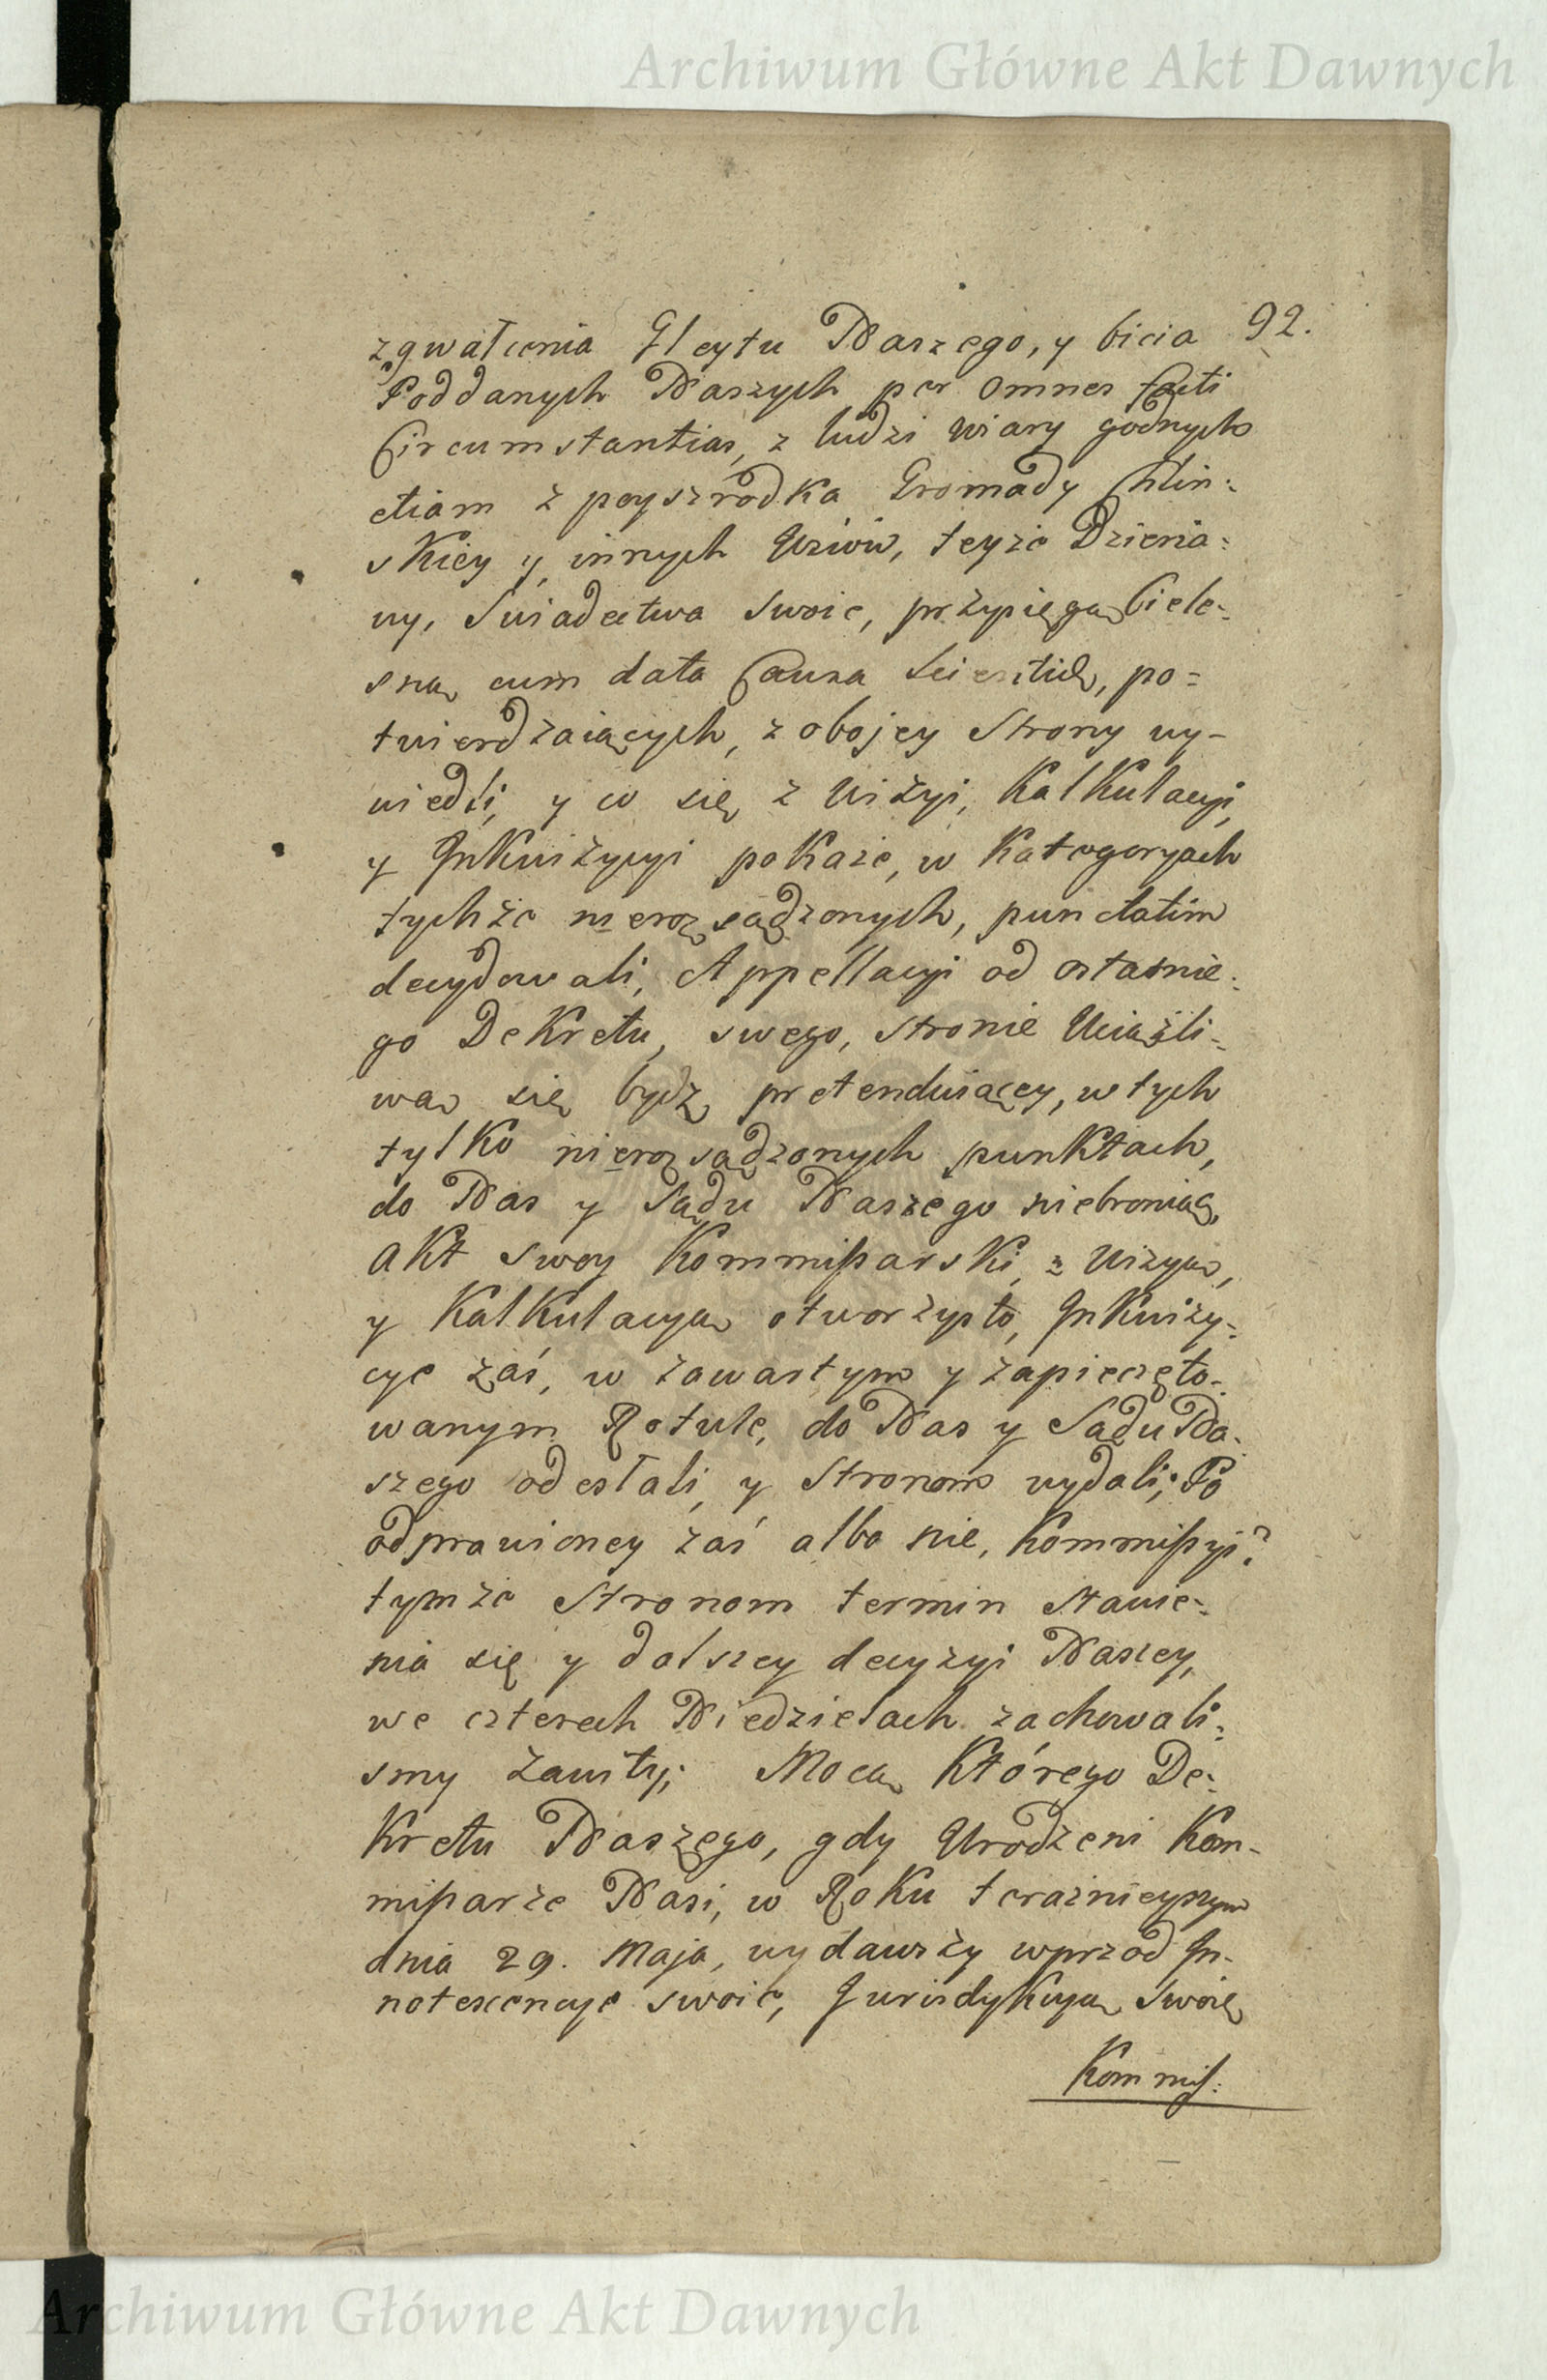 Archiwum Główne Akt Dawnych
92.
zgwałcenia Gleytu Naszego, y bicia
Poddanych Naszych per omnes facti
Circumstantias, z ludzi wiary godnych
etiam z poyszrodka Gromady
skiey y innych Wsiów, teyże Dzierża:
wy, Swiadectwa swoie, przysięgą Ciele:
sną cum data Causa Scientiæ, po=
twierdzaiących, z obojey Strony wy-
wiedli, y co się z Wizyi, Kalkulacyi,
y Inkwizycyi pokaże, w Kategoryach
tychże nierozsądzonych, punctatim
decydowali, Appellacyi od ostatnie:
go Dekretu, swego, stronie Uciążli:
wą się bydź pretenduiącey, w tych
tylko nierozsądzonych punktach,
do Nas y Sądu Naszego niebroniąc,
Akt swoy Kommissarski, z Wizyą,
y Kalkulacyą otworzysto, Inkwizy:
cye zaś, w zawartym y zapieczęto:
wanym Rotule, do Nas y Sądu Na:
szego odesłali, y Stronom wydali; Po
odprawioney zaś albo nie, Kommissyi?
tymże Stronom termin stawie:
nia się y dalszey decyzyi Naszey,
we czterech Niedzielach zachowali:
smy zawity; Mocą którego De:
kretu Naszego, gdy Urodzeni Kom-
missarze Nasi, w Roku teraźnieyszym
dnia 29. Maja, wydawszy wprzod In-
notescencye swoie, Jurisdykcyą swoię
Kommiss:
Archiwum Główne Akt Dawnych